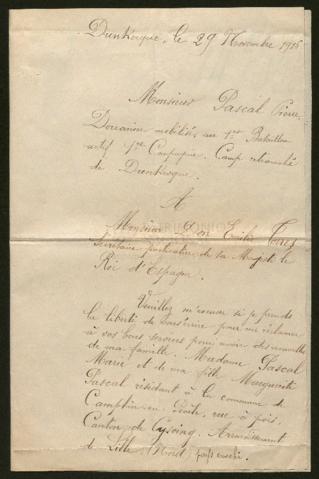 Dunkerque, le 29 Novembre 1915
Monsieur Pascal
Douanier mobilisé au 1er Bataillon
actif 1re Compagnie. Camp retranché
de Dunkerque.
A
Monsieur Don Emilio Torrès
Secrétaire particulier de sa Majesté le
Roi d'Espagne.
Veuillez m'excuser si je prends
la liberté de vous écrire pour me réclamer
à vos bons services pour avoir des nouvelles
de ma famille. Madame Pascal
Marie et de ma fille Marguerite
Pascal résidant à la commune de
Camphin-en-Pévèle, rue à pois,
Canton de Cysoing, Arrondissement
de Lille (Nord) pays envahi.